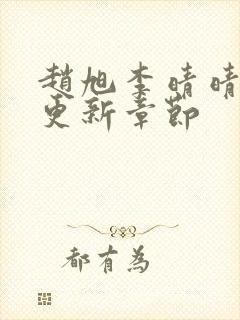 趙旭李晴晴
更新章節
都有為